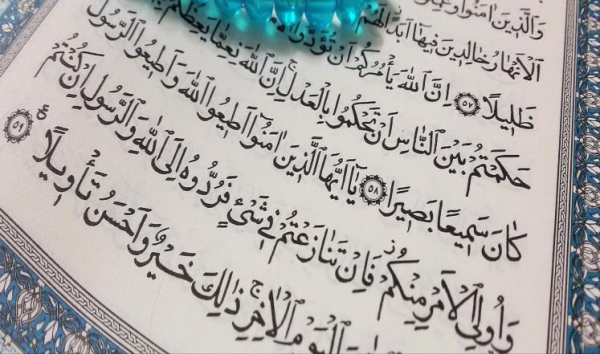 وَالَّذِينَ اٰمَنُوا
الْاَنْهَارُ خَالِدِينَ فِيهَا اَبَدًا لَهُمْ
ظَلِيلًا ﴿٥٧﴾ اِنَّ اللّٰهَ يَأْمُرُكُمْ اَنْ تُؤَدُّوا
حَكَمْتُمْ بَيْنَ النَّاسِ اَنْ تَحْكُمُوا بِالْعَدْلِ اِنَّ اللّٰهَ نِعِمَّا يَعِظُكُمْ
كَانَ سَمِيعًا بَصِيرًا ﴿٥٨﴾ يَا اَيُّهَا الَّذِينَ اٰمَنُوا اَطِيعُوا اللّٰهَ وَاَطِيعُوا الرَّسُولَ
وَاُولِي الْاَمْرِ مِنْكُمْ فَاِنْ تَنَازَعْتُمْ فِي شَيْءٍ فَرُدُّوهُ اِلَى اللّٰهِ وَالرَّسُولِ اِنْ كُنْتُمْ
الْيَوْمِ الْاٰخِرِ ذٰلِكَ خَيْرٌ وَاَحْسَنُ تَأْوِيلًا ﴿٥٩﴾ ع